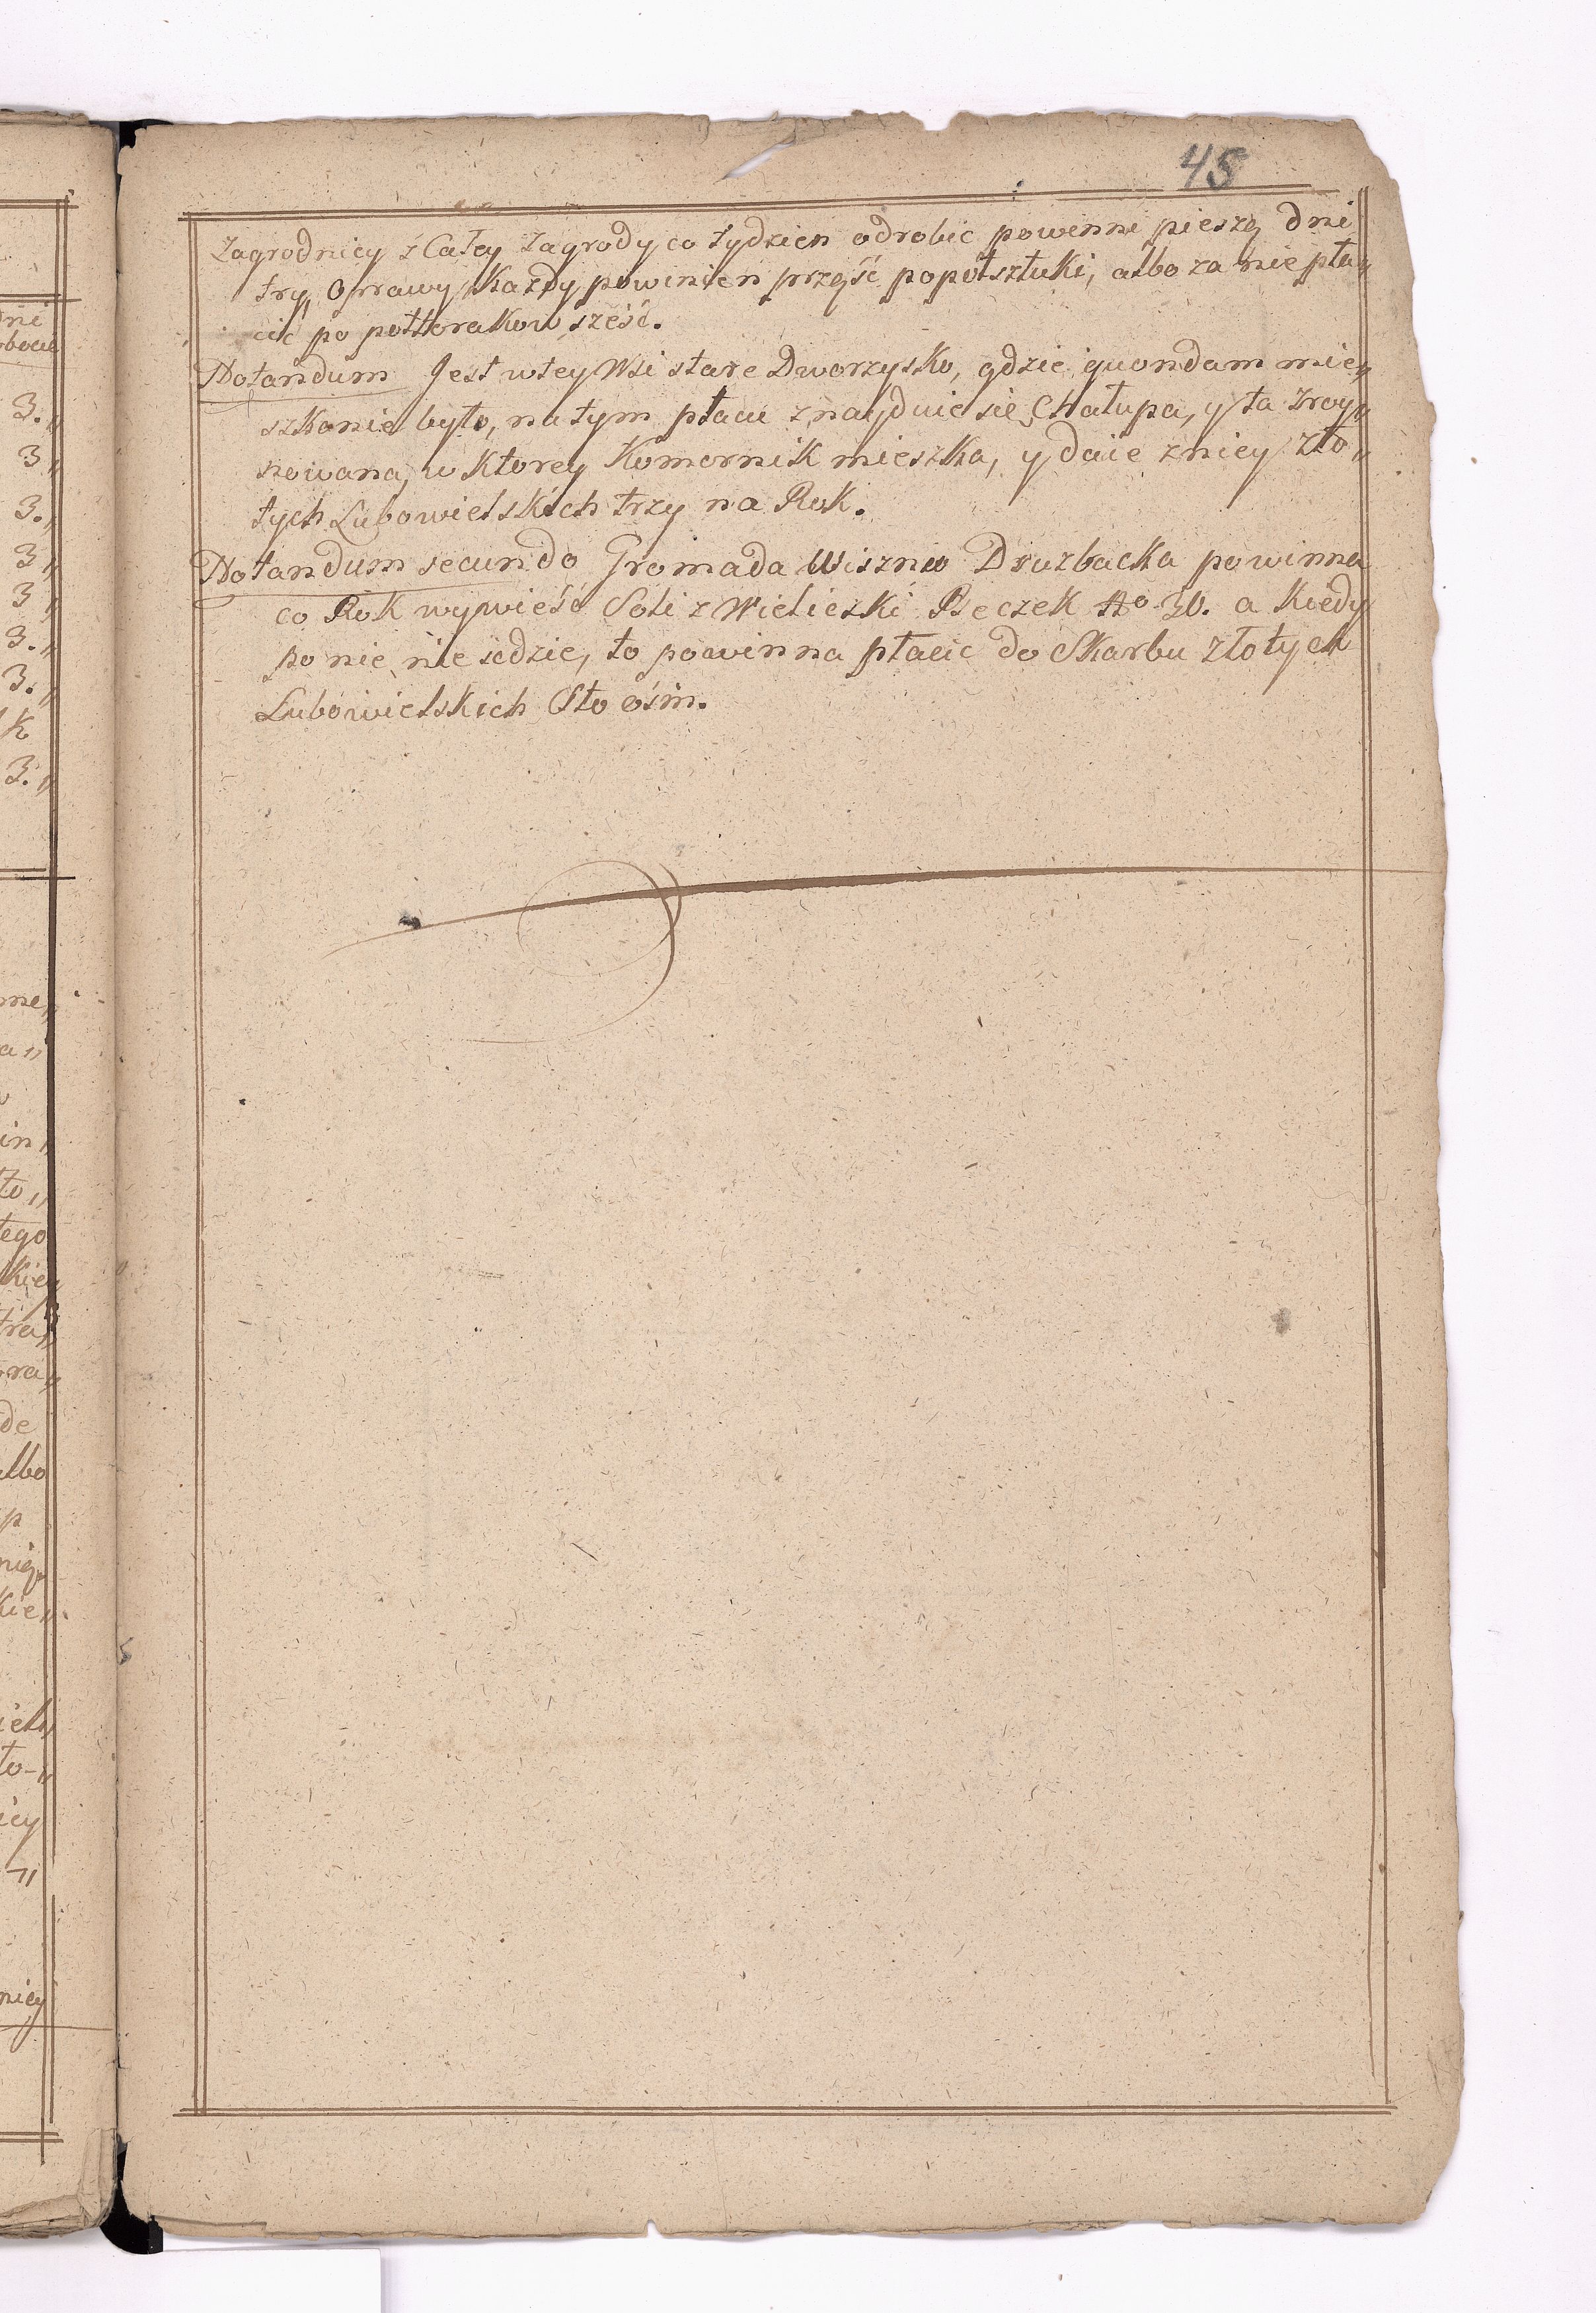 45
Zagrodnicy z Całey Zagrody co tydzien odrobic powinni pieszą dni
try, Oprawy Kazdy powinien prząść popołsztuki, albo za nie pła„
cić po połtorakow sześć.
Notandum Jest wtey Wsi stare Dworzysko, gdzie quondam mie„
szkanie było, na tym płacu znayduie się Chałupa, y ta Zruy„
nowana, w Ktorey Komornik mieszka, y daie zniey Zło„
tych Lubowielskich trzy na Rok.
Notandum secundo Gromada Wisznio Druzbacka powinna
co Rok wywieść Soli z Wieliczki Beczek No 30. a Kiedy
po nie nie iedzie, to powinna płacic do Skarbu Złotych
Lubowielskich Sto ośm.
dni
3.„
3„
3.„
3„
3„
3.„
3.„
k
3.„
me„
a„
in„
to„
tego
kiey
tra„
ra„
de
albo
p
nią
kie„
ich„
to-„
icy
nicy